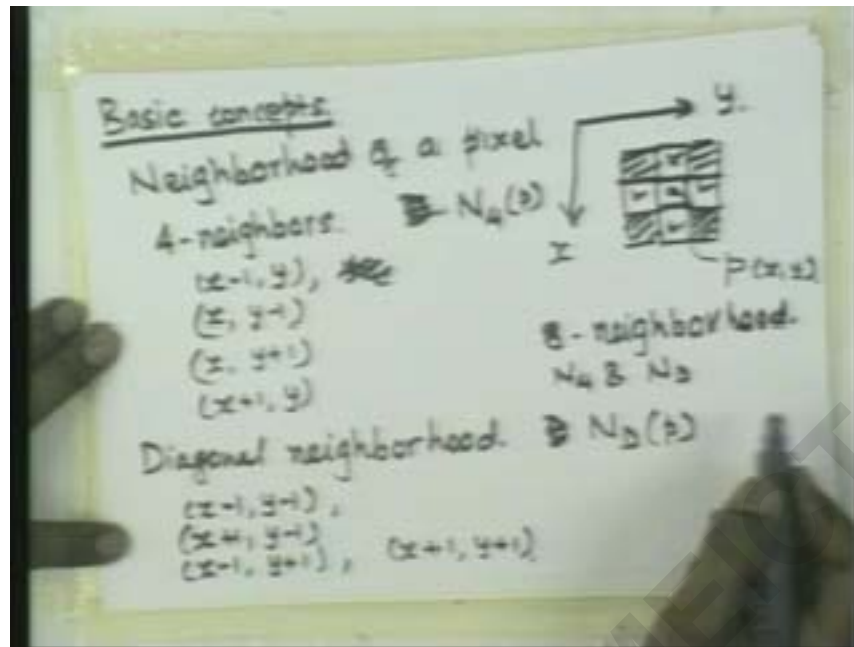 Basic concepts
Neighborhood of a pixel
4-neighbors. N₄(p)
(x-1, y),
(x, y-1)
(x, y+1)
(x+1, y)
y
x
p(x,y)
8-neighborhood.
N₄ & N_D
Diagonal neighborhood. N_D(p)
(x-1, y-1),
(x+1, y-1)
(x-1, y+1), (x+1, y+1)